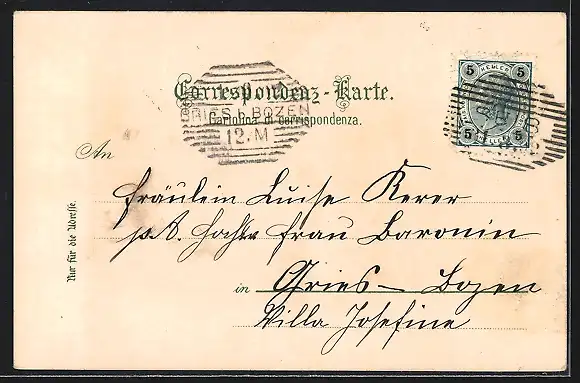 Correspondenz-Karte.
Cartolina di corrispondenza.
GRIES b. BOZEN
12. M
5 HELLER 5
5 HELLER 5
An
Fräulein Luise Kerer
p. A. Hochw Frau Baronin
in Gries – Bozen
Villa Josefine
Nur für die Adresse.